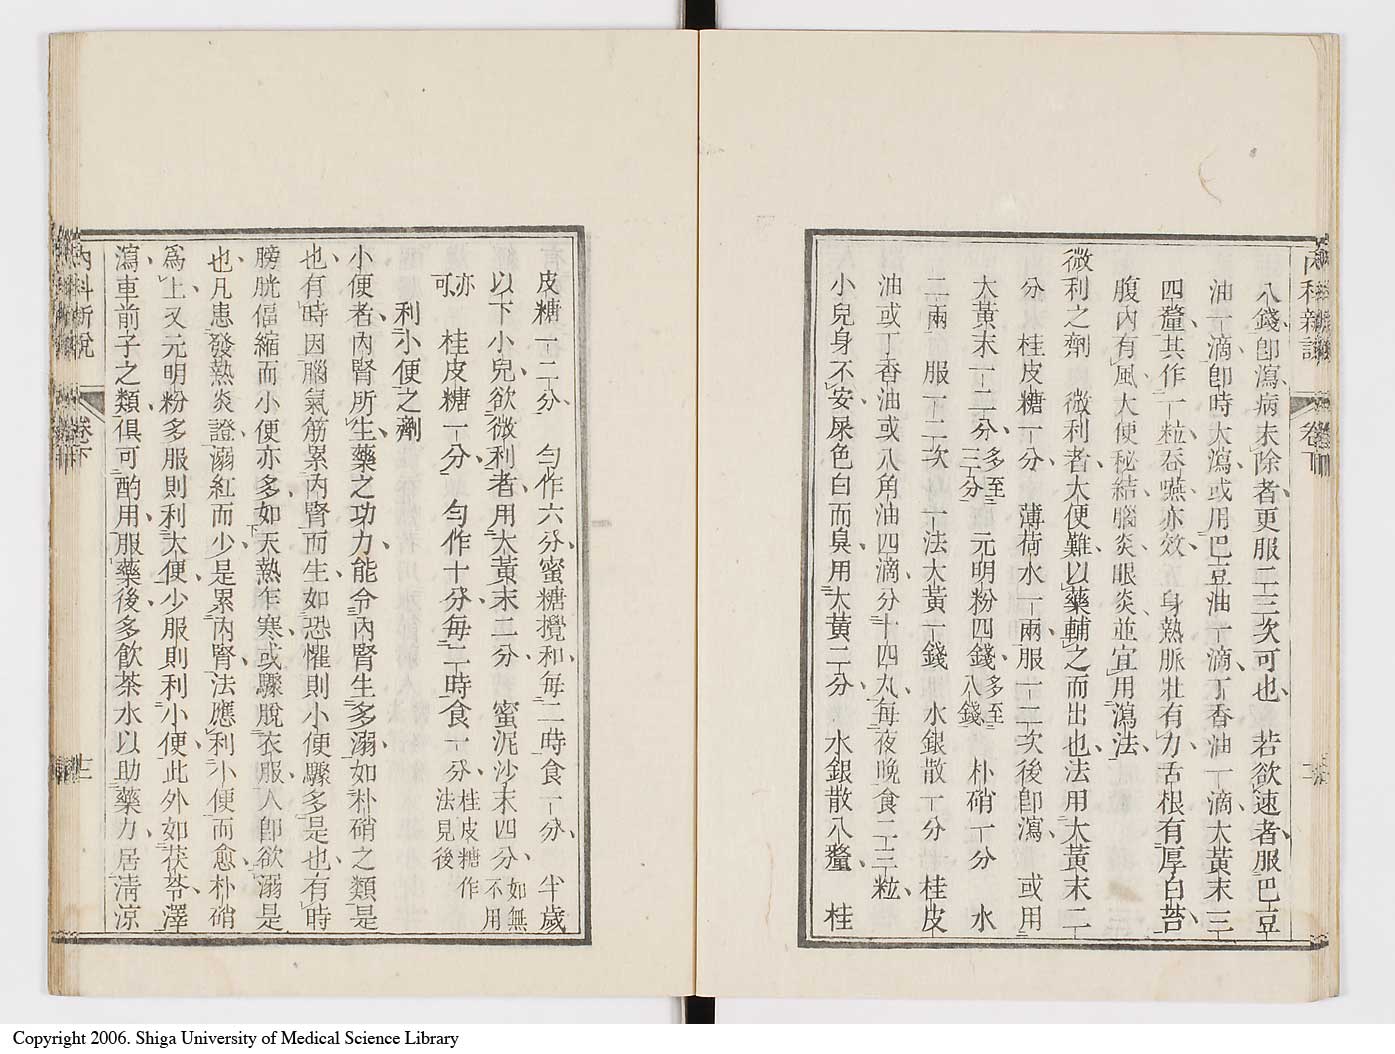 內科新說
卷下
八錢卽瀉病未除者更服二三次可也　若欲速者服巴豆
油一滴卽時大瀉或用巴豆油一滴丁香油一滴大黃末三
四釐共作一粒吞嚥亦效　身熱脈壯有力舌根有厚白苔
腹內有風大便秘結腦炎眼炎並宜用瀉法
微利之劑　微利者大便難以藥輔之而出也法用大黃末二
分　桂皮糖一分　薄荷水一兩服一二次後卽瀉　或用
大黃末一二分多至三分　元明粉四錢多至八錢　朴硝一分　水
二兩　服一二次　一法大黃一錢　水銀散一分　桂皮
油或丁香油或八角油四滴分十四丸每夜晚食二三粒
小兒身不安屎色白而臭用大黃二分　水銀散八釐　桂
皮糖一二分　勻作六分蜜糖攪和每二時食一分　半歲
以下小兒欲微利者用大黃末二分　蜜泥沙末四分如無不用
亦可　桂皮糖一分　勻作十分每二時食一分桂皮糖作法見後
利小便之劑
小便者內腎所生藥之功力能令內腎生多溺如朴硝之類是
也有時因腦氣筋累內腎而生如恐懼則小便驟多是也有時
膀胱偪縮而小便亦多如天熱乍寒或驟脫衣服人卽欲溺是
也凡患發熱炎證溺紅而少是累內腎法應利小便而愈朴硝
爲上又元明粉多服則利大便少服則利小便此外如茯苓澤
瀉車前子之類俱可酌用服藥後多飲茶水以助藥力居淸凉
內科新說
卷下
十二
Copyright 2006. Shiga University of Medical Science Library